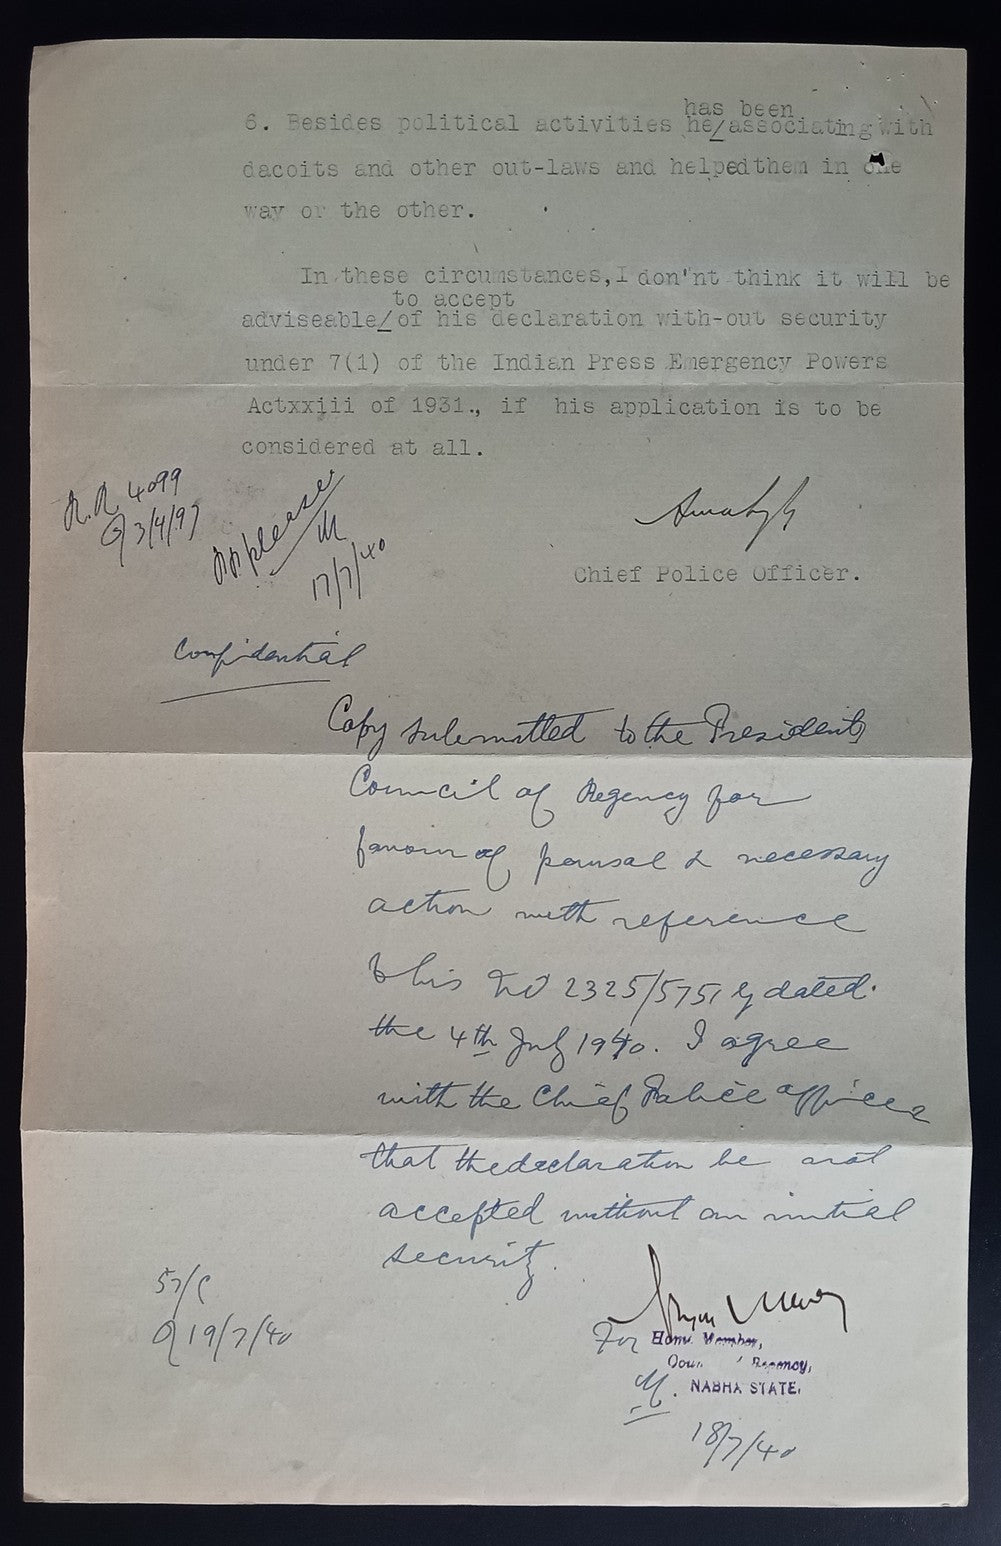 has been
6. Besides political activities he/associating with
dacoits and other out-laws and helpedthem in one
way or the other.
In these circumstances,I don'nt think it will be
to accept
adviseable/of his declaration with-out security
under 7(1) of the Indian Press Emergency Powers
Actxxiii of 1931., if his application is to be
considered at all.
4099
3/4/97
please
17/7/40
Chief Police Officer.
Confidential
Copy submitted to the Presidents
Council of Regency for
favour of perusal & necessary
action with reference
to his No 2325/5751 dated.
the 4th July 1940. I agree
with the Chief Police officer
that the declaration be not
accepted without an initial
security.
57/C
19/7/40
For Home Member,
Regency,
NABHA STATE.
18/7/40